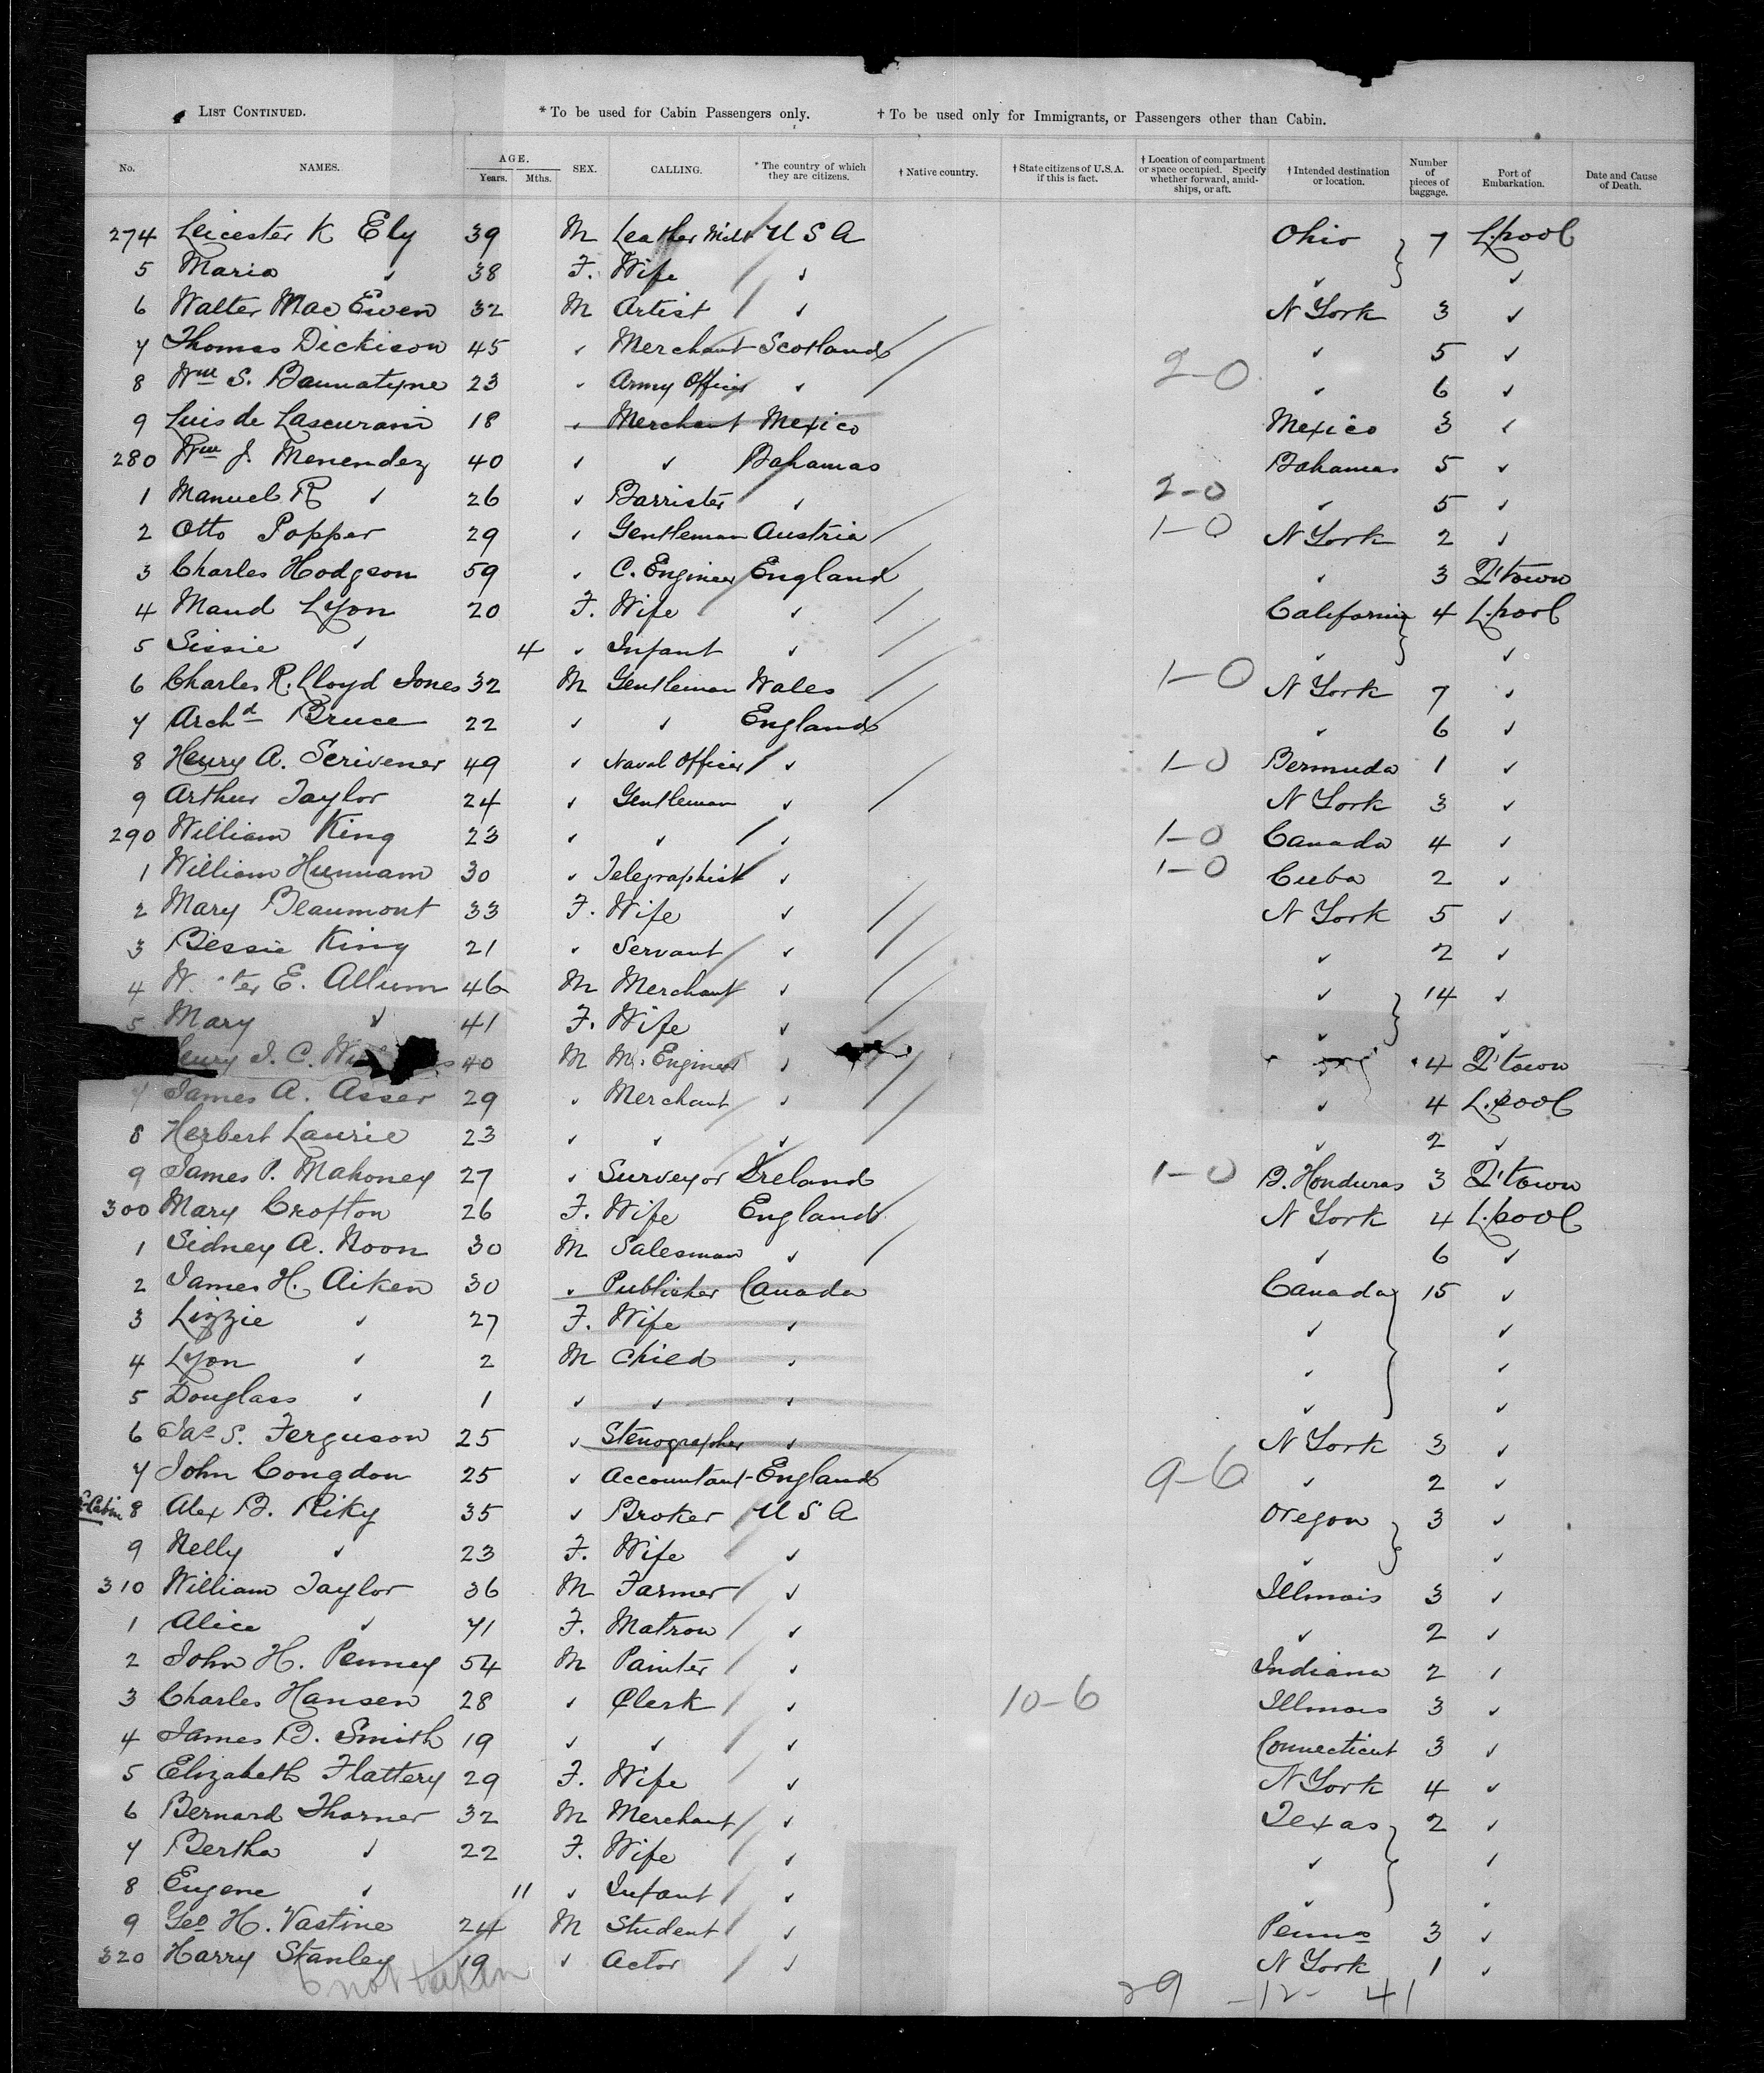 LIST CONTINUED. * To be used for Cabin Passengers only. † To be used only for Immigrants, or Passengers other than Cabin.
No. NAMES. AGE. Years. Mths. SEX. CALLING. * The country of which they are citizens. † Native country. † State citizens of U.S.A. if this is fact. † Location of compartment or space occupied. Specify whether forward, amidships, or aft. † Intended destination or location. Number of pieces of baggage. Port of Embarkation. Date and Cause of Death.
274 Leicester K Ely 39 M Leather USA Ohio 7 L.pool
5 Maria ✓ 38 F. Wife ✓ ✓ ✓
6 Walter Mac Ewen 32 M Artist ✓ N York 3 ✓
7 Thomas Dickison 45 ✓ Merchant Scotland ✓ 5 ✓
8 Wm S. Bannatyne 23 ✓ Army Officer ✓ 2-0 ✓ 6 ✓
9 Luis de Lascurain 18 ✓ Merchant Mexico Mexico 3 ✓
280 Wm J. Menendez 40 ✓ ✓ Bahamas Bahamas 5 ✓
1 Manuel R ✓ 26 ✓ Barrister ✓ 2-0 ✓ 5 ✓
2 Otto Popper 29 ✓ Gentleman Austria 1-0 N York 2 ✓
3 Charles Hodgson 59 ✓ C. Engineer England ✓ 3 Q'town
4 Maud Lyon 20 F. Wife ✓ California 4 L.pool
5 Sissie ✓ 4 ✓ Infant ✓ ✓ ✓
6 Charles R. Lloyd Jones 32 M Gentleman Wales 1-0 N York 7 ✓
7 Archd Bruce 22 ✓ ✓ England ✓ 6 ✓
8 Henry A. Scrivener 49 ✓ Naval Officer ✓ 1-0 Bermuda 1 ✓
9 Arthur Taylor 24 ✓ Gentleman ✓ N York 3 ✓
290 William King 23 ✓ ✓ ✓ 1-0 Canada 4 ✓
1 William Hunnam 30 ✓ Telegraphist ✓ 1-0 Cuba 2 ✓
2 Mary Beaumont 33 F. Wife ✓ N York 5 ✓
3 Bessie King 21 ✓ Servant ✓ ✓ 2 ✓
4 E. Allum 46 M Merchant ✓ ✓ 14 ✓
5 Mary ✓ 41 F. Wife ✓ ✓ ✓
J. C. 40 M M. Engineer ✓ 4 Q'town
7 James A. Asser 29 ✓ Merchant ✓ ✓ 4 L.pool
8 Herbert Laurie 23 ✓ ✓ ✓ ✓ 2 ✓
9 James P. Mahoney 27 ✓ Surveyor Ireland 1-0 B. Honduras 3 Q'town
300 Mary Crofton 26 F. Wife England N York 4 L.pool
1 Sidney A. Noon 30 M Salesman ✓ ✓ 6 ✓
2 James H. Aiken 30 ✓ Publisher Canada Canada 15 ✓
3 Lizzie ✓ 27 F. Wife ✓ ✓ ✓
4 Lyon ✓ 2 M Child ✓ ✓ ✓
5 Douglass ✓ 1 ✓ ✓ ✓ ✓ ✓
6 Jas S. Ferguson 25 ✓ Stenographer ✓ N York 3 ✓
7 John Congdon 25 ✓ Accountant England 9-6 ✓ 2 ✓
8 Alex B. Riky 35 ✓ Broker USA Oregon 3 ✓
9 Nelly ✓ 23 F. Wife ✓ ✓ ✓
310 William Taylor 36 M Farmer ✓ Illinois 3 ✓
1 Alice ✓ 71 F. Matron ✓ ✓ 2 ✓
2 John H. Penney 54 M Painter ✓ Indiana 2 ✓
3 Charles Hansen 28 ✓ Clerk ✓ 10-6 Illinois 3 ✓
4 James B. Smith 19 ✓ ✓ ✓ Connecticut 3 ✓
5 Elizabeth Flattery 29 F. Wife ✓ N York 4 ✓
6 Bernard Thorner 32 M Merchant ✓ Texas 2 ✓
7 Bertha ✓ 22 F. Wife ✓ ✓ ✓
8 Eugene ✓ 11 ✓ Infant ✓ ✓ ✓
9 Geo H. Vastine 24 M Student ✓ Penna 3 ✓
320 Harry Stanley 19 ✓ Actor ✓ N York 1 ✓
not taken 29 -12- 41